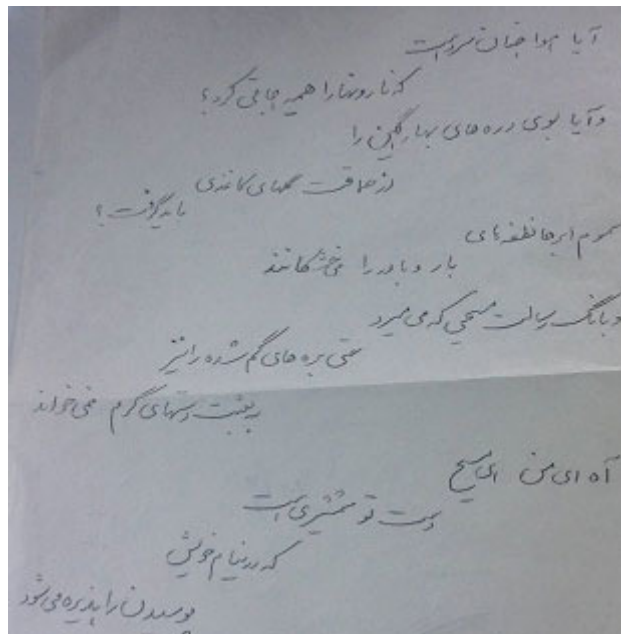 آیا هوا چنان سرد است
که نارونها را همه جا قی کرد؟
و آیا بوی دره های بهار گین را
از حماقت گلهای کاغذی
باید گرفت؟
سموم ابرها نطفه های
بار و باور را می خشکانند
و بانگ رسالت مسیحی که می میرد
حتی بره های گم شده را نیز
رغبت دستهای گرم نمی خواند
آه ای من ای مسیح
دست تو شمشیری است
که در نیام خویش
پوسیدن را پذیره می شود